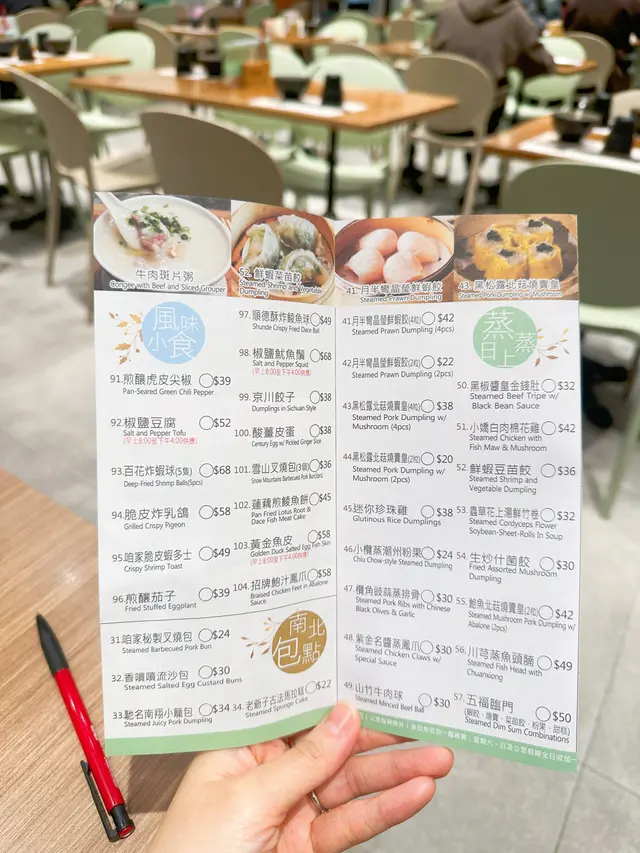 牛肉斑片粥
Congee with Beef and Sliced Grouper
52. 鮮蝦菜苗餃
Steamed Shrimp and Vegetable
Dumpling
41. 月半彎晶瑩鮮蝦餃
Steamed Prawn Dumpling
43. 黑松露北菇燒賣皇
Steamed Pork Dumpling w/ Mushroom
風味
小食
91. 煎釀虎皮尖椒 $39
Pan-Seared Green Chili Pepper
92. 椒鹽豆腐 $52
Salt and Pepper Tofu
(早上8:00至下午4:00供應)
93. 百花炸蝦球(5隻) $68
Deep-Fried Shrimp Balls(5pcs)
94. 脆皮炸乳鴿 $58
Grilled Crispy Pigeon
95. 咱家脆皮蝦多士 $49
Crispy Shrimp Toast
96. 煎釀茄子 $39
Fried Stuffed Eggplant
97. 順德酥炸鯪魚球 $49
Shunde Crispy Fried Dace Ball
98. 椒鹽魷魚鬚 $68
Salt and Pepper Squid
(早上8:00至下午4:00供應)
99. 京川餃子 $38
Dumplings in Sichuan Style
100. 酸薑皮蛋 $38
Century Egg w/ Pickled Ginger Slice
101. 雪山叉燒包(3個) $36
Snow Mountains Barbecued Pork Bun(3pcs)
102. 蓮藕煎鯪魚餅 $45
Pan Fried Lotus Root &
Dace Fish Meat Cake
103. 黃金魚皮 $58
Golden Duck Salted Egg Fish Skin
(早上8:00至下午4:00供應)
104. 招牌鮑汁鳳爪 $58
Braised Chicken Feet in Abalone
Sauce
南北
包點
31. 咱家秘製叉燒包 $24
Steamed Barbecued Pork Bun
32. 香噴噴流沙包 $30
Steamed Salted Egg Custard Buns
33. 馳名南翔小籠包 $34
Steamed Juicy Pork Dumpling
34. 老爺子古法馬拉糕 $22
Steamed Sponge Cake
41. 月半彎晶瑩鮮蝦餃(4粒) $42
Steamed Prawn Dumpling (4pcs)
42. 月半彎晶瑩鮮蝦餃(2粒) $22
Steamed Prawn Dumpling (2pcs)
43. 黑松露北菇燒賣皇(4粒) $38
Steamed Pork Dumpling w/
Mushroom (4pcs)
44. 黑松露北菇燒賣皇(2粒) $20
Steamed Pork Dumpling w/
Mushroom (2pcs)
45. 迷你珍珠雞 $38
Glutinous Rice Dumplings
46. 小欖蒸潮州粉果 $24
Chiu Chow-style Steamed Dumpling
47. 欖角豉蒜蒸排骨 $30
Steamed Pork Ribs with Chinese
Black Olives & Garlic
48. 紫金名醬蒸鳳爪 $30
Steamed Chicken Claws w/
Special Sauce
49. 山竹牛肉球 $30
Steamed Minced Beef Ball
蒸蒸
日上
50. 黑椒醬皇金錢肚 $32
Steamed Beef Tripe w/
Black Bean Sauce
51. 小嬌白肉棉花雞 $42
Steamed Chicken with
Fish Maw & Mushroom
52. 鮮蝦豆苗餃 $36
Steamed Shrimp and
Vegetable Dumpling
53. 蟲草花上湯鮮竹卷 $32
Steamed Cordyceps Flower
Soybean-Sheet-Rolls In Soup
54. 生炒什菌餃 $30
Fried Assorted Mushroom
Dumpling
55. 鮑魚北菇燒賣皇(2粒) $42
Steamed Mushroom Pork Dumpling w/
Abalone (2pcs)
56. 川芎蒸魚頭腩 $49
Steamed Fish Head with
Chuanxiong
57. 五福臨門 $50
(蝦餃、燒賣、菜苗餃、粉果、甜糕)
Steamed Dim Sum Combinations